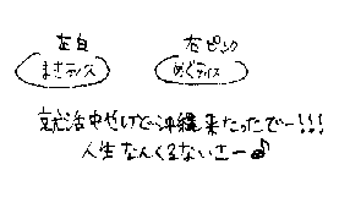 左白 右ピンク
まさティス めぐティス
就活中やけど沖縄来たったでー!!!
人生なんくるないさー♪